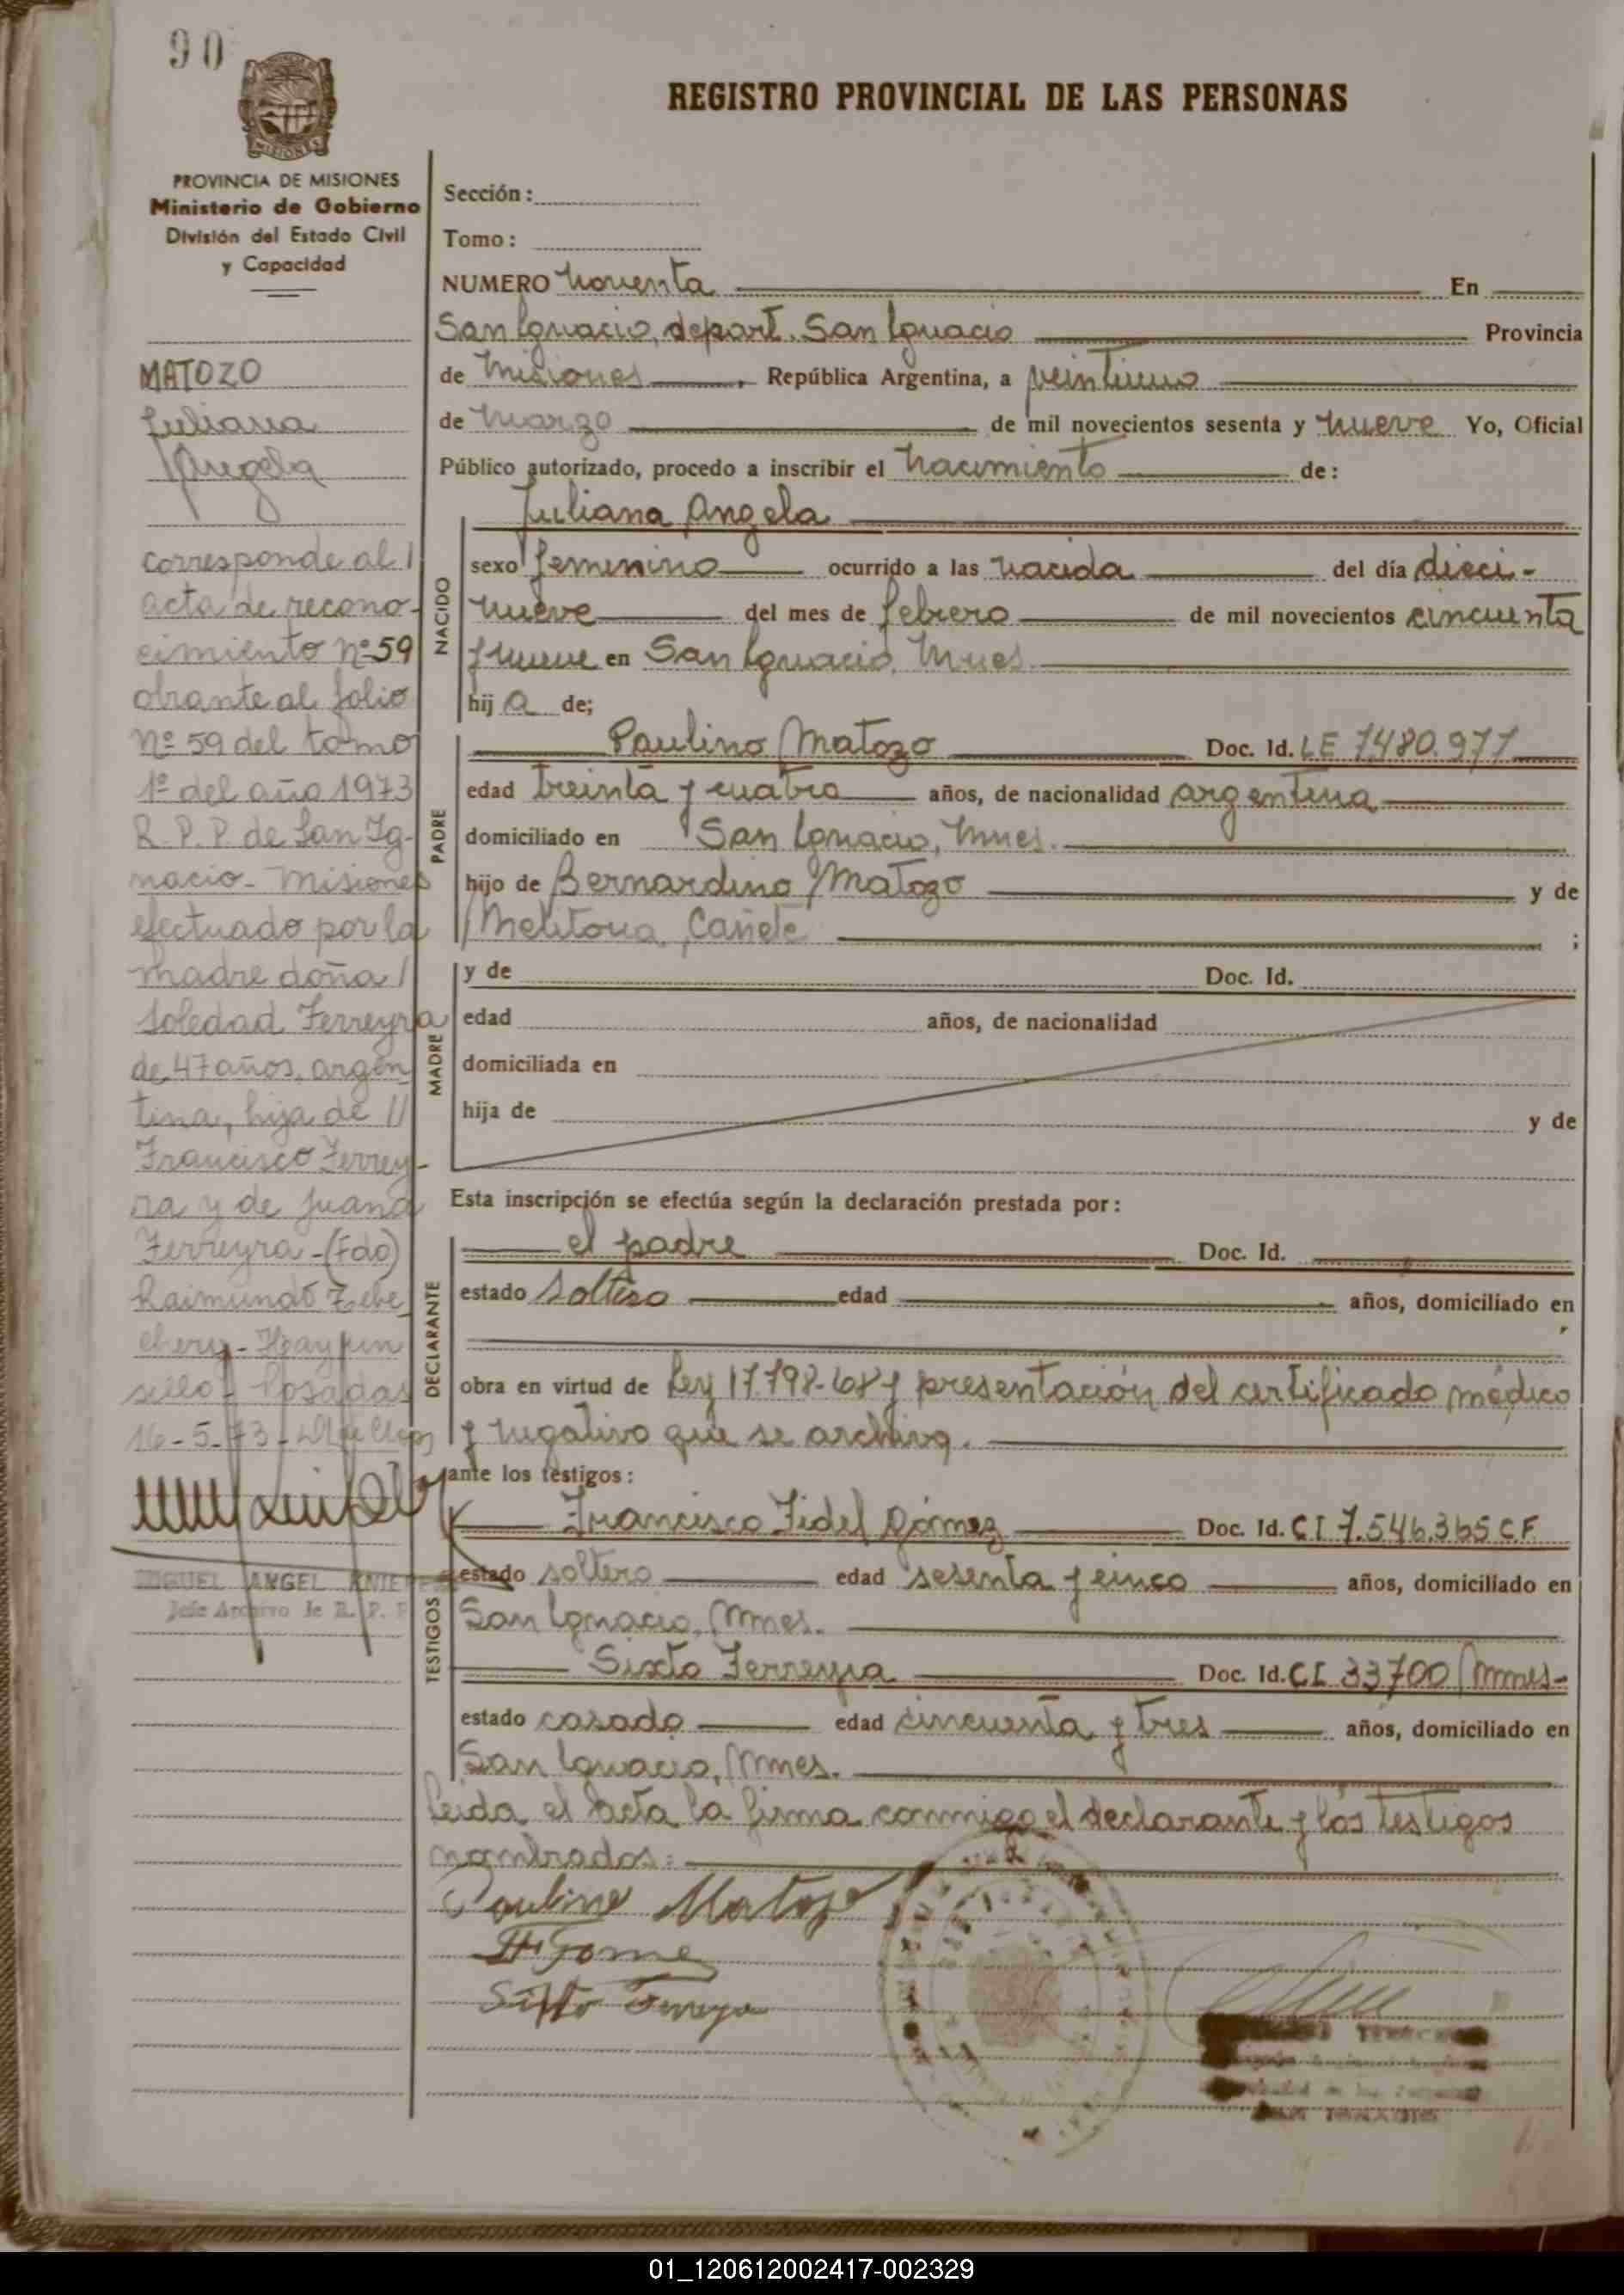 90
REGISTRO PROVINCIAL DE LAS PERSONAS
MISIONES
PROVINCIA DE MISIONES
Ministerio de Gobierno
División del Estado Civil
y Capacidad
MATOZO
Juliana
Angela
corresponde al /
acta de recono-
cimiento nº 59
obrante al folio
Nº 59 del tomo
1º del año 1973
R.P.P. de San Ig-
nacio - Misiones
efectuado por la
madre doña /
Soledad Ferreyra
de 47 años, argen
tina, hija de //
Francisco Ferrey-
ra y de Juana
Ferreyra - (Fdo)
Raimundo
Hay un
sello - Posadas
16-5-73
MIGUEL ANGEL
Jefe Archivo de R. P. P.
Sección:
Tomo:
NUMERO Noventa En
San Ignacio, depart. San Ignacio Provincia
de Misiones, República Argentina, a veintiuno
de Marzo de mil novecientos sesenta y nueve Yo, Oficial
Público autorizado, procedo a inscribir el nacimiento de:
Juliana Angela
NACIDO
sexo femenino ocurrido a las nacida del día dieci-
nueve del mes de febrero de mil novecientos cincuenta
y nueve en San Ignacio, Mnes.
hij a de;
PADRE
Paulino Matozo Doc. Id. LE 7480.977
edad treinta y cuatro años, de nacionalidad argentina
domiciliado en San Ignacio, Mnes.
hijo de Bernardino Matozo y de
Melitona Cañete ;
MADRE
y de Doc. Id.
edad años, de nacionalidad
domiciliada en
hija de y de
Esta inscripción se efectúa según la declaración prestada por:
DECLARANTE
el padre Doc. Id.
estado soltero edad años, domiciliado en
obra en virtud de Ley 17.798-68 y presentación del certificado médico
y negativo que se archiva.
ante los testigos:
TESTIGOS
Francisco Fidel Gómez Doc. Id. CI 7.546.365 C.F.
estado soltero edad sesenta y cinco años, domiciliado en
San Ignacio, Mnes.
Sixto Ferreyra Doc. Id. CI 33700 Mnes-
estado casado edad cincuenta y tres años, domiciliado en
San Ignacio, Mnes.
Leida el acta la firma conmigo el declarante y los testigos
nombrados:
Paulino Matozo
Sixto Ferreyra
SAN IGNACIO
01_120612002417-002329